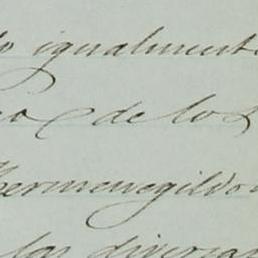 igualmente
de los
Hermenegildo
las diversas